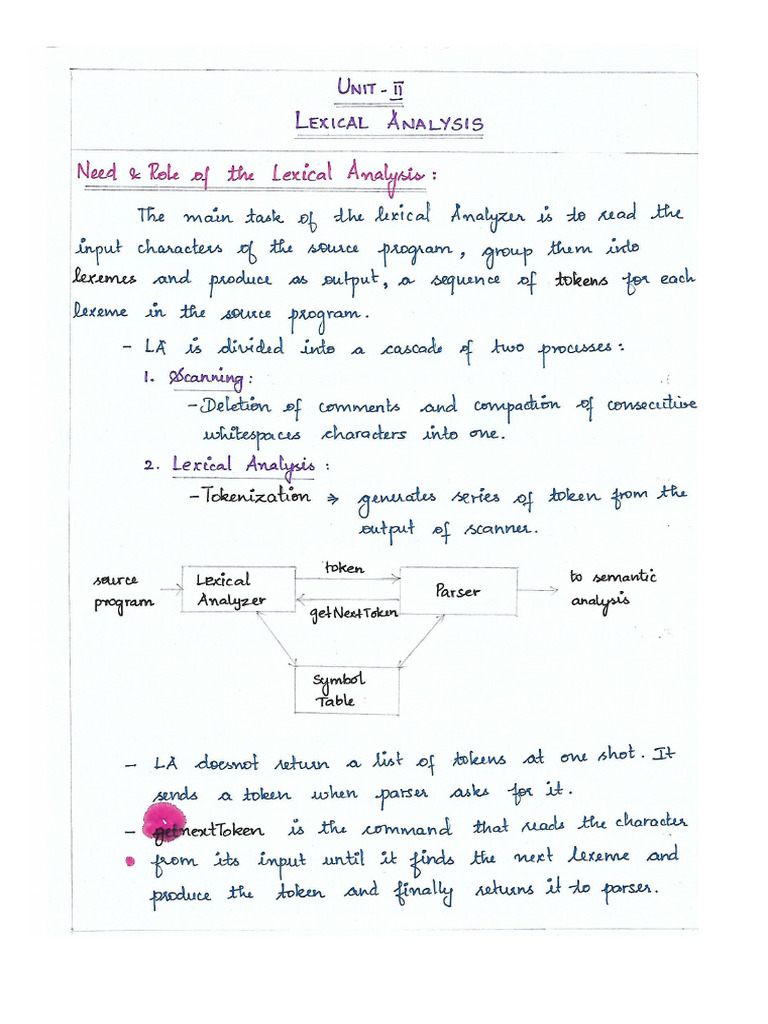 UNIT - II
LEXICAL ANALYSIS
Need & Role of the Lexical Analysis :
The main task of the lexical Analyzer is to read the
input characters of the source program, group them into
lexemes and produce as output, a sequence of tokens for each
lexeme in the source program.
- LA is divided into a cascade of two processes :
1. Scanning :
- Deletion of comments and compaction of consecutive
whitespaces characters into one.
2. Lexical Analysis :
- Tokenization ⇒ generates series of token from the
output of scanner.
source program
Lexical Analyzer
token
getNextToken
Parser
to semantic analysis
Symbol Table
- LA doesnot return a list of tokens at one shot. It
sends a token when parser asks for it.
- getnextToken is the command that reads the character
from its input until it finds the next lexeme and
produce the token and finally returns it to parser.